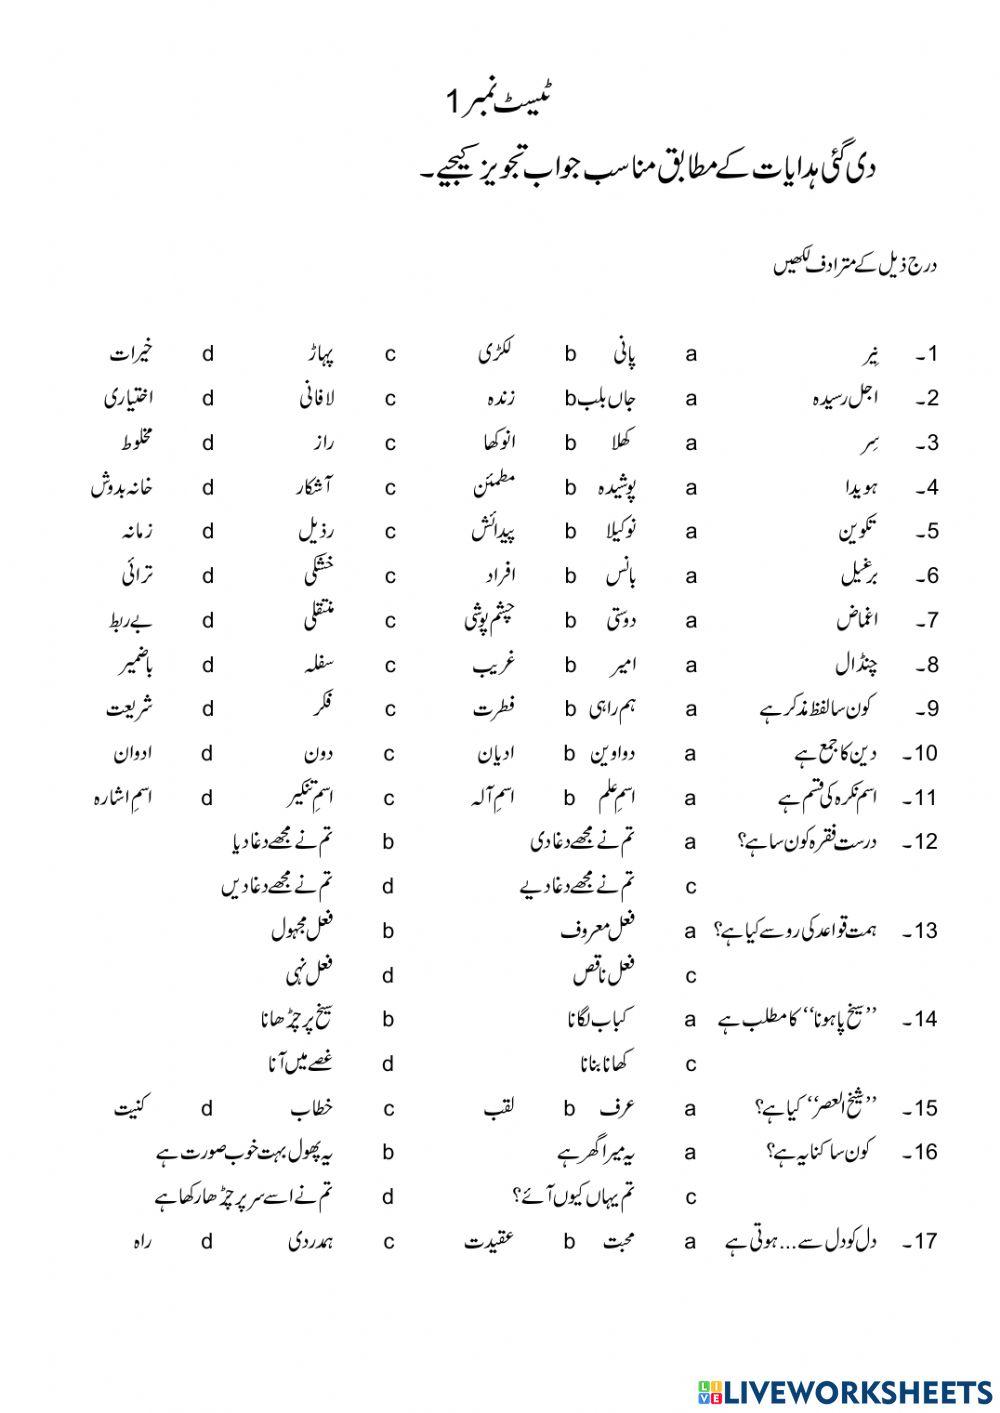 ٹیسٹ نمبر 1
دی گئی ہدایات کے مطابق مناسب جواب تجویز کیجیے۔
درج ذیل کے مترادف لکھیں
1۔ نِیر a پانی b لکڑی c پہاڑ d خیرات
2۔ اجل رسیدہ a جاں بلب b زندہ c لافانی d اختیاری
3۔ سِر a کھلا b انوکھا c راز d مخلوط
4۔ ہویدا a پوشیدہ b مطمئن c آشکار d خانہ بدوش
5۔ تکوین a نوکیلا b پیدائش c رذیل d زمانہ
6۔ برغیل a بانس b افراد c خشکی d ترائی
7۔ اغماض a دوستی b چشم پوشی c منتقلی d بے ربط
8۔ چنڈال a امیر b غریب c سفلہ d باضمیر
9۔ کون سا لفظ مذکر ہے a ہم راہی b فطرت c فکر d شریعت
10۔ دین کا جمع ہے a دواوین b ادیان c دون d ادوان
11۔ اسم نکرہ کی قسم ہے a اسمِ علم b اسمِ آلہ c اسمِ تنکیر d اسمِ اشارہ
12۔ درست فقرہ کون سا ہے؟ a تم نے مجھے دغا دی b تم نے مجھے دغا دیا
c تم نے مجھے دغا دیے d تم نے مجھے دغا دیں
13۔ ہمت قواعد کی رو سے کیا ہے؟ a فعل معروف b فعل مجہول
c فعل ناقص d فعل نہی
14۔ ’’سیخ پا ہونا‘‘ کا مطلب ہے a کباب لگانا b سیخ پر چڑھانا
c کھانا بنانا d غصے میں آنا
15۔ ’’شیخ العصر‘‘ کیا ہے؟ a عرف b لقب c خطاب d کنیت
16۔ کون سا کنایہ ہے؟ a یہ میرا گھر ہے b یہ پھول بہت خوب صورت ہے
c تم یہاں کیوں آئے؟ d تم نے اسے سر پر چڑھا رکھا ہے
17۔ دل کو دل سے... ہوتی ہے a محبت b عقیدت c ہمدردی d راہ
LIVEWORKSHEETS